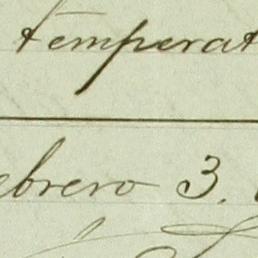 temperat
ebrero 3.